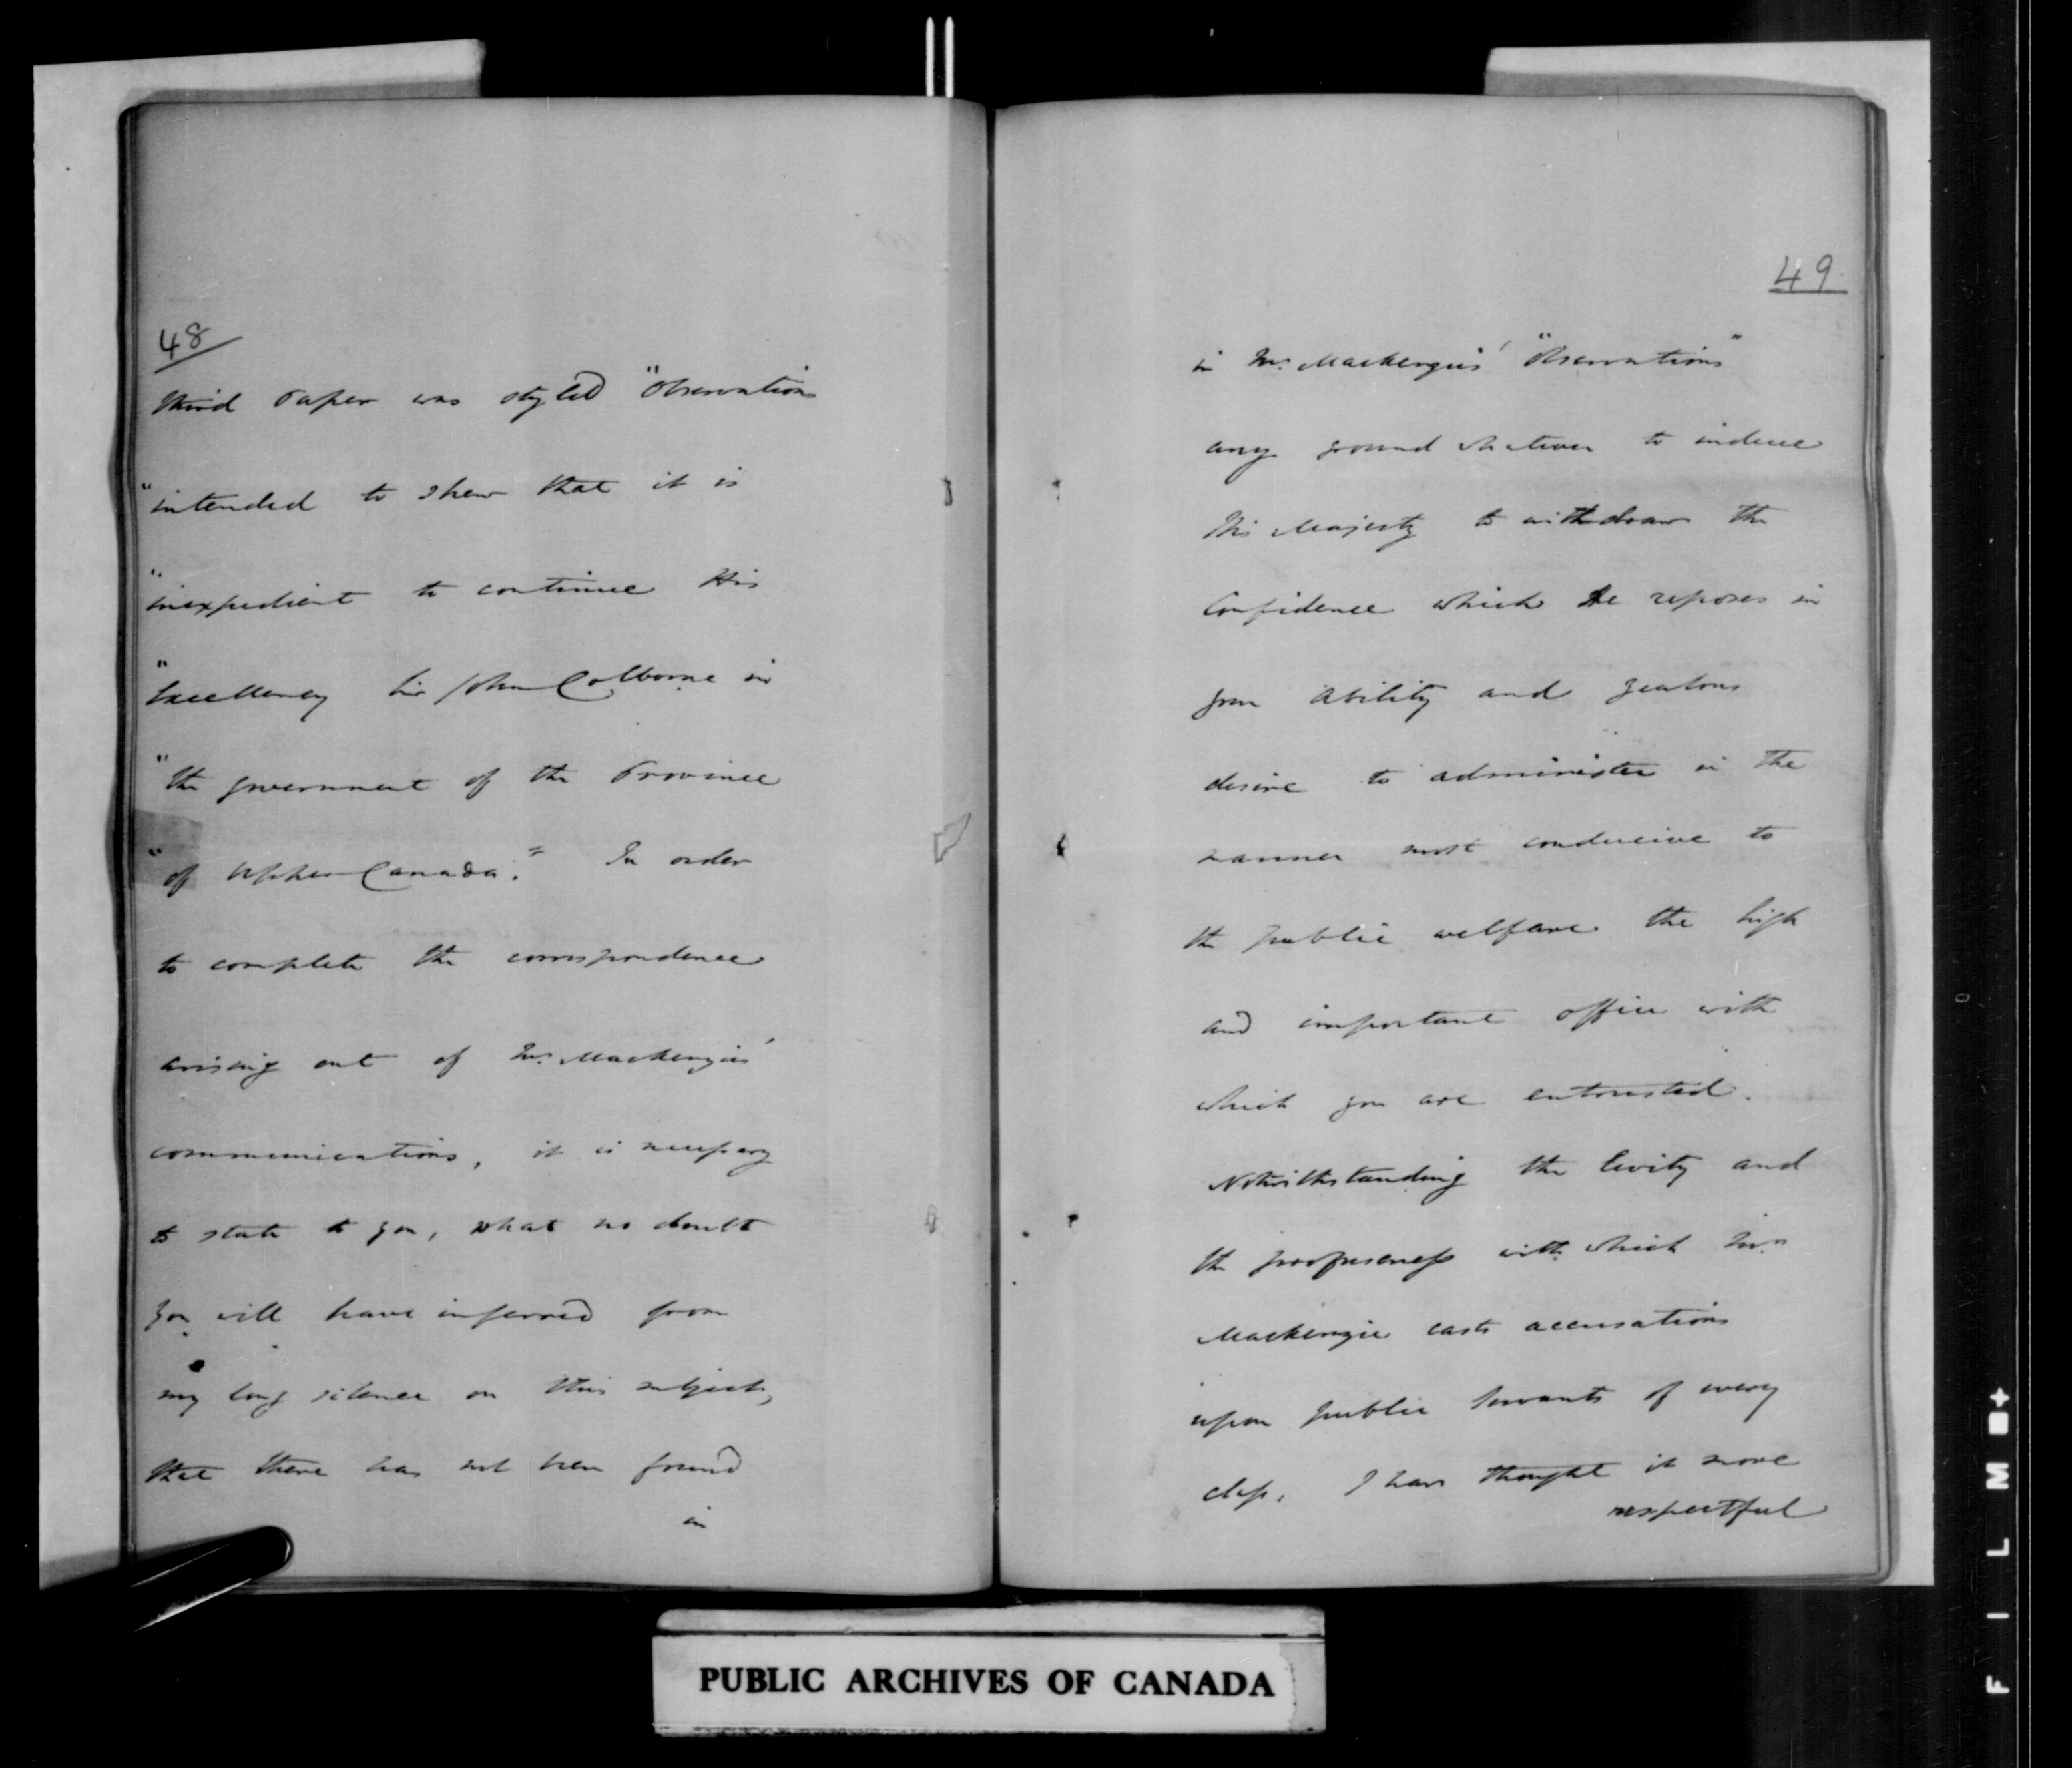 48
third Paper was styled "Observations
"intended to shew that it is
"inexpedient to continue His
"Excellency Sir John Colborne in
"the government of the Province
"of Upper Canada." In order
to complete the correspondence
arising out of Mr. Mackenzie's
communications, it is necessary
to state to you, what no doubt
you will have inferred from
my long silence on this subject,
that there has not been found
in
49
in Mr. Mackenzie's "Observations"
any ground whatever to induce
His Majesty to withdraw the
Confidence which He reposes in
your ability and zealous
desire to administer in the
manner most conducive to
the public welfare the high
and important office with
which you are entrusted.
Notwithstanding the levity and
the profuseness with which Mr.
Mackenzie casts accusations
upon public Servants of every
class, I have thought it more
respectful
PUBLIC ARCHIVES OF CANADA
FILM